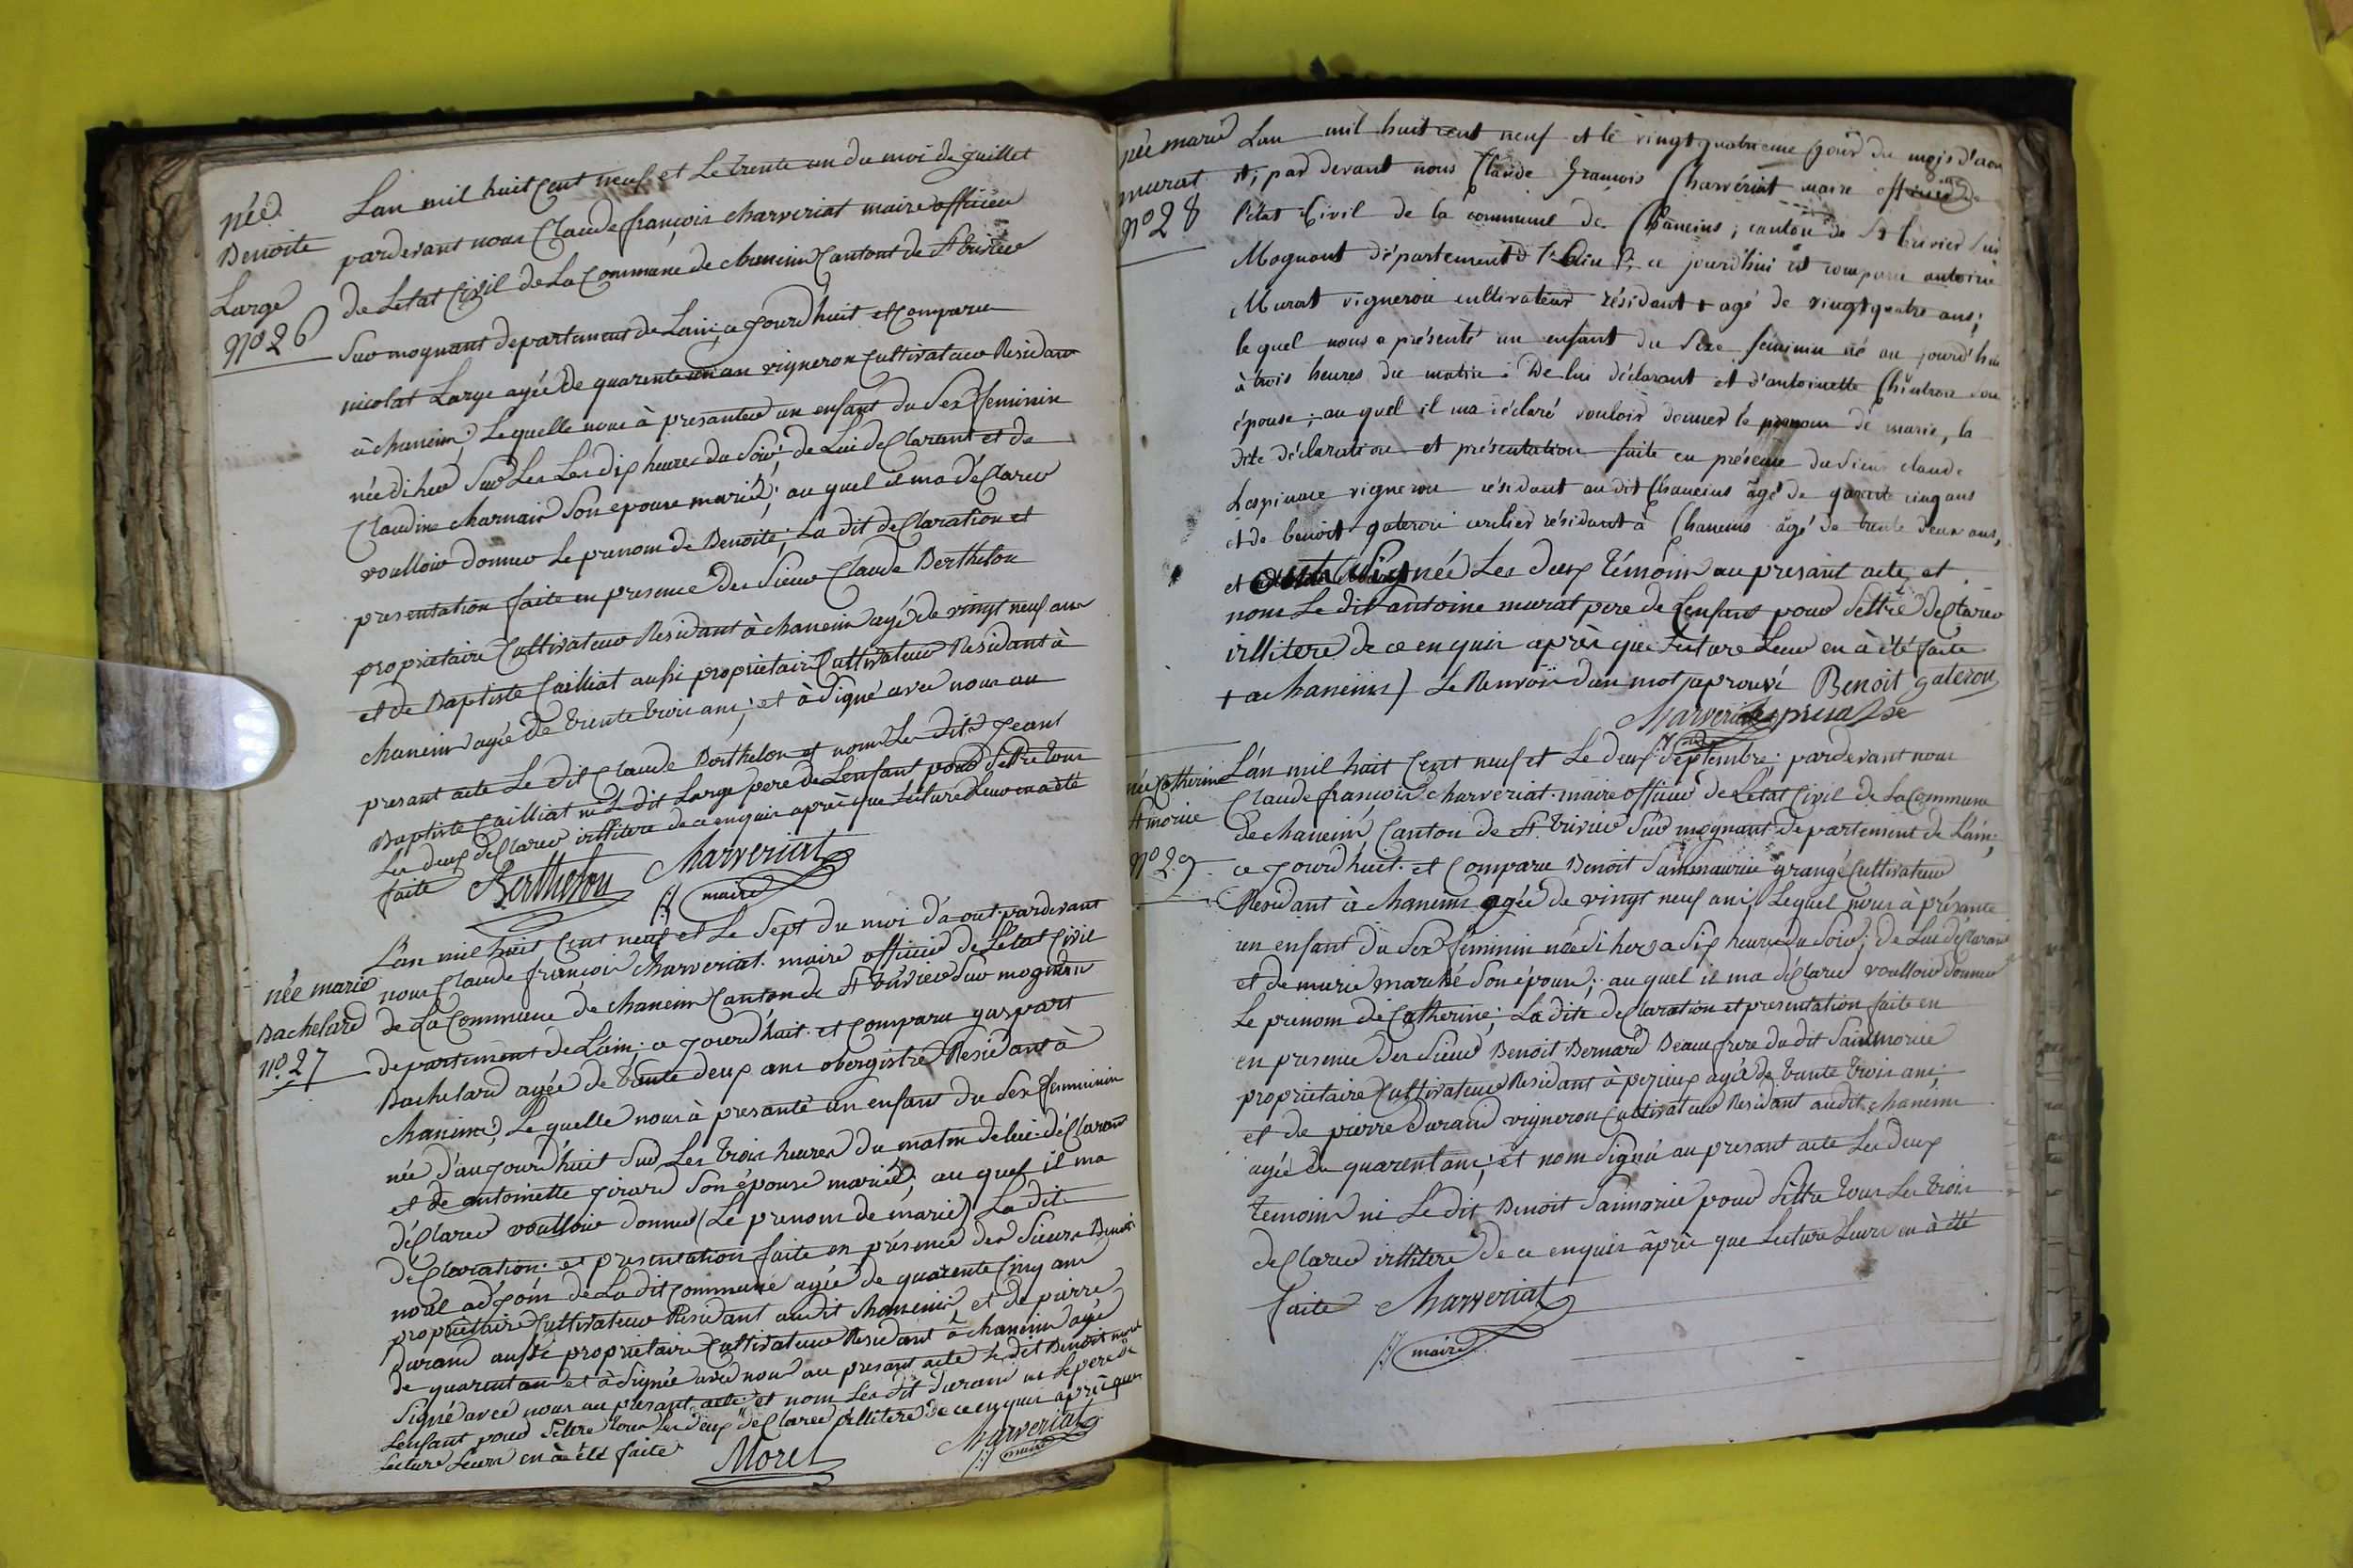 née
Benoite
Large
N° 26
Lan mil huit Cent neuf et Le trente un du moi de Juillet
pardevant nous Claude françois charveriat maire officier
de Letat Civil de La Commune de chaneins Cantont de St trivier
Sur mognant departement de Lain, ce jourd huit et Comparu
nicolat Large agée de quarente un an vigneron Cultivateur Residant
à chaneins, Lequelle nous à presanter un enfant du Sex feminin
née di her Sur Les Les dix heures du Soir, de Lui declarant et de
Claudine charnair Son epouse mariée; au quel il ma déClarer
voulloir donner Le prenom de Benoite; La dit deClaration et
presentation faite en presence des Sieur Claude Berthelon
propriataire Cultivateur Residant à chaneins agé de vingt neuf ans
et de Baptiste Cailliat aussi proprietair Cultivateur Residant à
chaneins agée de trente trois ans; et à Signé avec nous au
presant acte Le dit Claude Berthelon et nom Le dit Jean
Baptiste Cailliat ni Le dit Large pere de Lenfant pour Settre tous
Les deux deClarer illitere de ce enquis après que Lecture Leur en a été
faite Berthelon Charveriat
maire
née marie
Bachelard
N° 27
Lan mil huit Cent neuf et Le Sept du moi d'a out pardevant
nous Claude françois Charveriat maire officier de Letat Civil
de La Commune de chaneins Canton de St trivier Sur mognan
departement de Lain; ce jourd'huit et Comparu gaspart
Bachelard agée de trante deux ans obergistre Residant à
chaneins, Le quelle nous à presanté un enfant du Sex femminin
née d'aujourd'huit Sur Les trois heures du matin de lui déClaran
et de antoinette girard Son épouse mariée; au quel il ma
déClarer voulloir donner (Le prenom de marie) La dit
deClaration et presentation faite en présence des Sieurs Benoit
morel adjoin de La dit Commune agée de quarente Cinq ans
propriètaire Cultivateur Residant au dit chaneins, et de pierre
Durand aussi propriétaire Cultivateur Residant à chaneins agé
de quarent an et à Signée avec nous au presant acte Le dit Benoit morel
Signé avec nous au presant acte et nom Les dit Durand ni Le pere de
Lenfant pour Settre tous Les deux deClarer illitere de ce enquis après que
Lecture Leurs en à été faite Morel Charveriat
maire
née marie
murat
N° 28
Lan mil huit cent neuf et le vingt quatrieme jour du mois d'aou
st, par devant nous Claude François Charvériat maire officier de
l'état Civil de la commune de Chaneins, canton de St trivier sur
Mognant département de l'Ain; ce jourd'hui est comparu antoine
Murat vigneron cultivateur résidant + agé de vingt quatre ans;
le quel nous a présenté un enfant du Sexe feminin né au jourd'hui
à trois heures du matin. De lui déclarant et d'antoinette Chintron son
épouse; au quel il ma déclaré vouloir donner le prenom de marie, la
dite déclaration et présentation faite en présence du Sieur claude
Lespinasse vigneron résidant au dit Chaneins âgé de quarente cinq ans
et de benoit gateron résidant à Chaneins âgé de trente deux ans,
et ont Signée Les deux témoins au presant acte, et
nom Le dit antoine murat pere de Lenfant pour Settre declarer
illitere de ce enquis après que Lecture Leur en à été faite
+ a chaneins) Le Renvoi d'un mot aprouvé Benoit gateron
Charveriat
maire
née Catherine
St morice
N° 29
L'an mil huit Cent neuf et Le deux Septembre; pardevant nous
Claude françois charvériat maire officier de Létat Civil de La Commune
de chaneins, Canton de St trivier Sur mognant departement de Lain;
ce jourd'huit et Comparu Benoit Saintmaurice grangé Cultivateur
Residant à chaneins agée de vingt neuf ans, Lequel nous à présante
un enfant du Sex féminin née di her a Six heure du Soir; de Lui déClarant
et de marie marché Son épouse; au quel il ma déClarer voulloir donner
Le prenom de Catherine; La dite deClaration et presentation faite en
en presence des Sieur Benoit Bernard Beau frere du dit Saintmorice
proprietaire Cultivateur Residant à pezieux agée de trente trois ans;
et de pierre Durand vigneron Cultivateur Residant au dit chaneins
agée de quarent ans; et nom Signée au presant acte Les deux
temoins ni Le dit Benoit Saimorice pour Settre tous Les trois
deClarer illitere de ce enquis âprès que Lecture Leurs en à été
faite Charveriat
maire